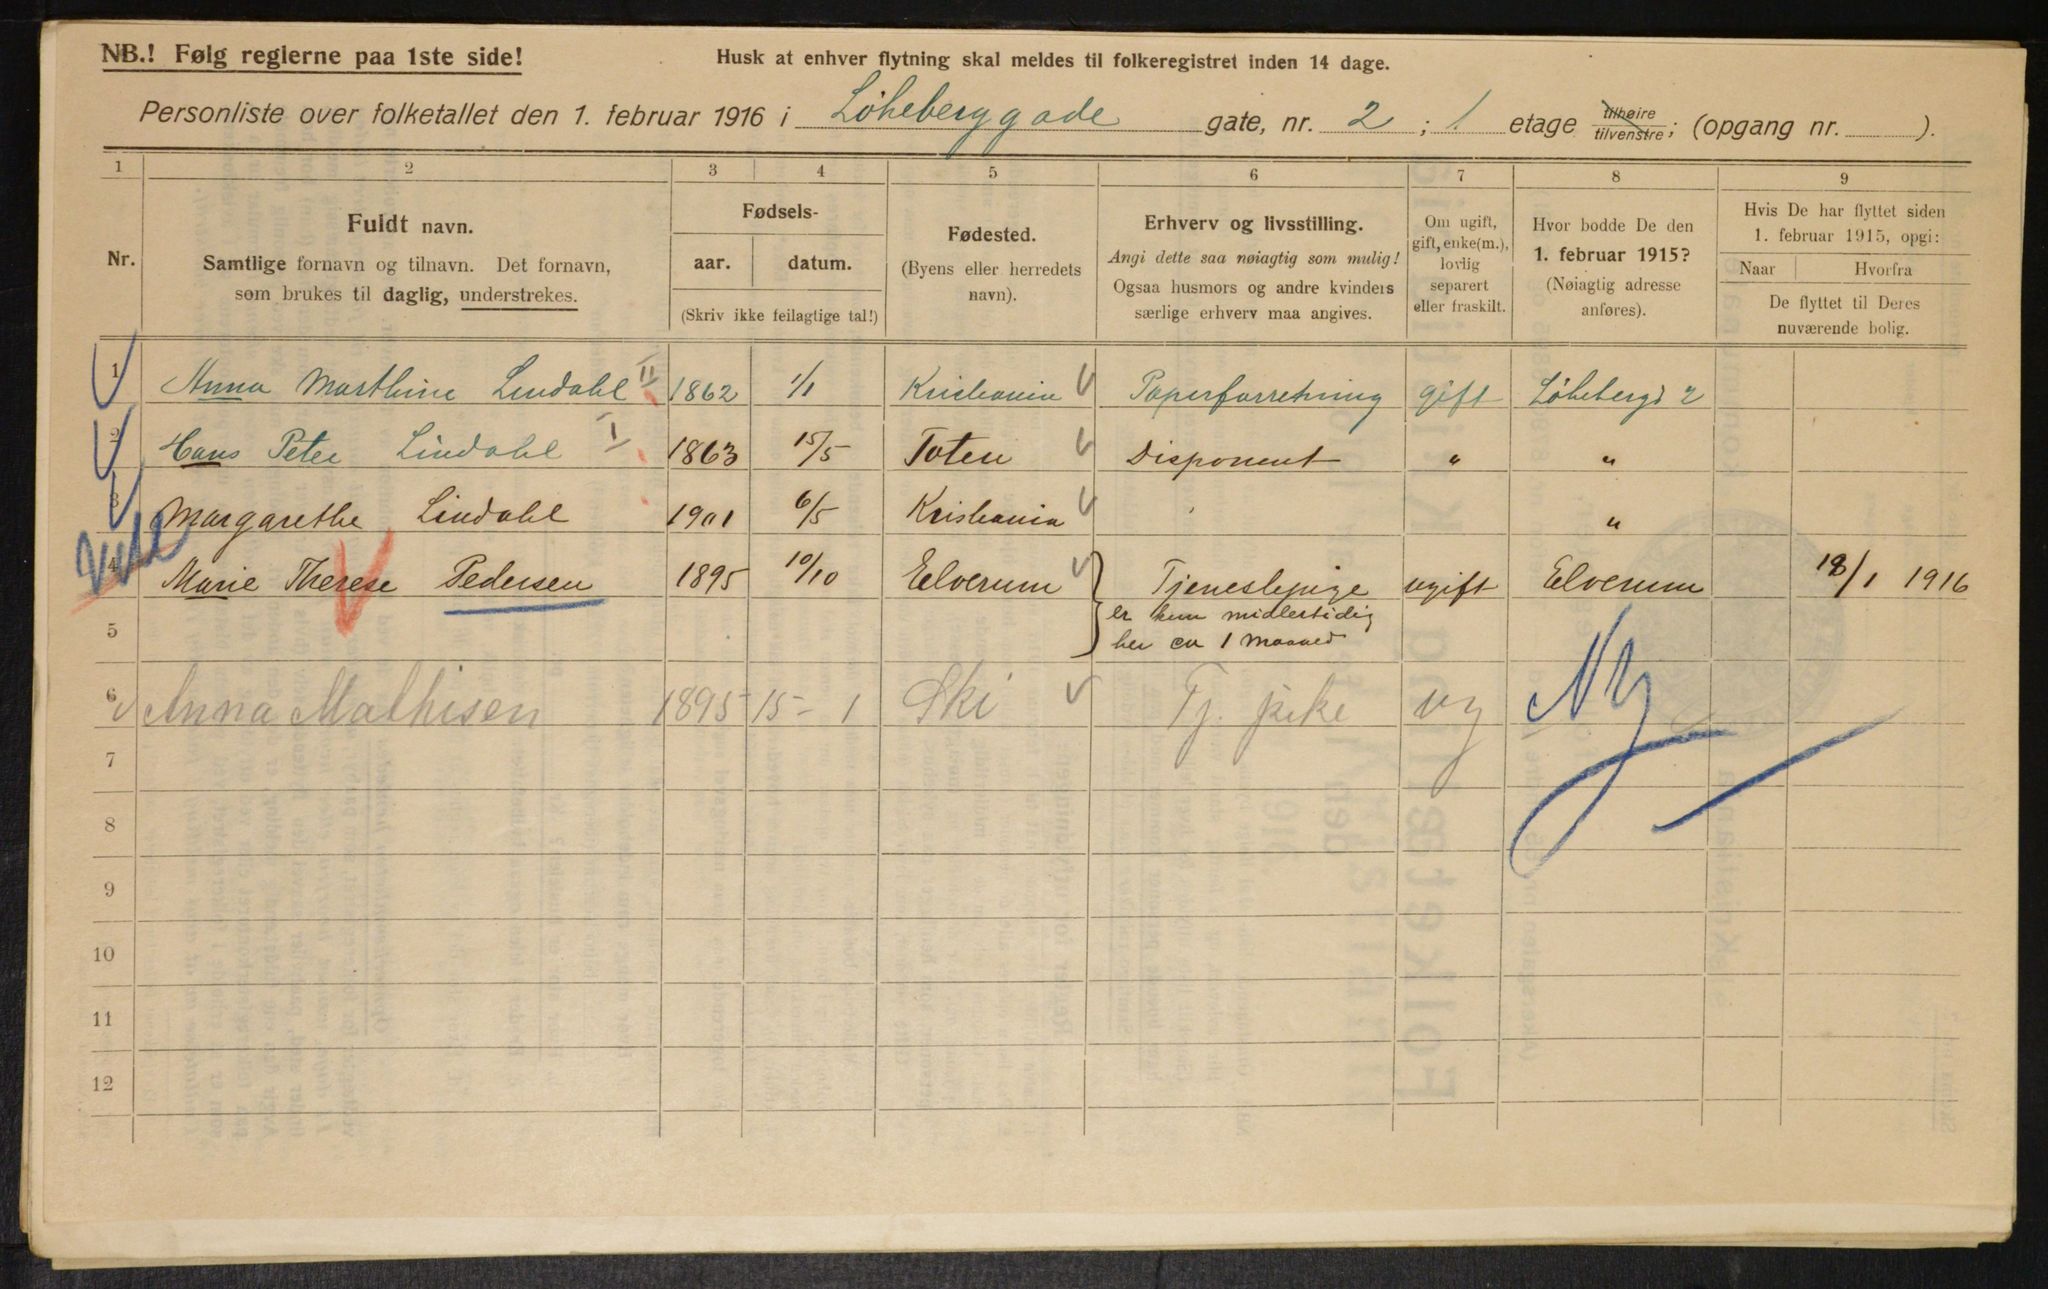 NB.! Følg reglerne paa 1ste side!
Husk at enhver flytning skal meldes til folkeregistret inden 14 dage.
Personliste over folketallet den 1. februar 1916 i Løkeberggade gate, nr. 2 ; 1. etage tilhøire tilvenstre; (opgang nr. ).
1 2 3 4 5 6 7 8 9
Nr.
Fuldt navn.
Samtlige fornavn og tilnavn. Det fornavn,
som brukes til daglig, understrekes.
Fødsels-
aar. datum.
(Skriv ikke feilagtige tal!)
Fødested.
(Byens eller herredets
navn).
Erhverv og livsstilling.
Angi dette saa nøiagtig som mulig!
Ogsaa husmors og andre kvinders
særlige erhverv maa angives.
Om ugift,
gift, enke(m.),
lovlig
separert
eller fraskilt.
Hvor bodde De den
1. februar 1915?
(Nøiagtig adresse
anføres).
Hvis De har flyttet siden
1. februar 1915, opgi:
Naar Hvorfra
De flyttet til Deres
nuværende bolig.
1 Anna Marthine Lindahl II 1862 1/1 Kristiania Papirforretning gift Løkebergs 2
2 Hans Peter Lindahl I 1863 15/5 Toten Disponent " "
3 Margarethe Lindahl 1901 6/5 Kristiania "
4 Marie Therese Pedersen 1895 10/10 Elverum Tjenestepige ugift Elverum 18/1 1916
er kun midlertidig
5 her ca 1 maaned
6 Anna Mathisen 1895 15-1 Ski Tj. pike ug Ny
7
8
9
10
11
12